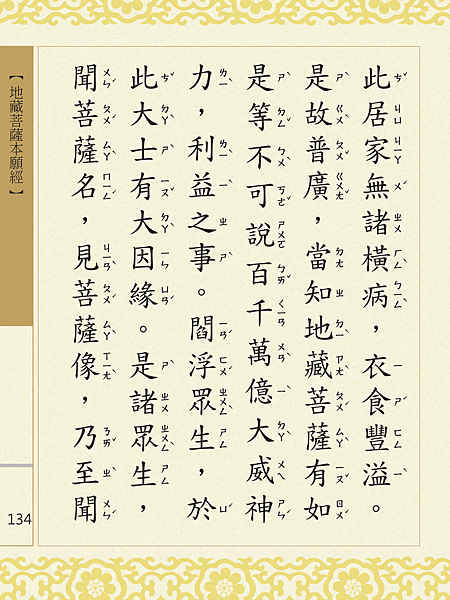 此居家無諸橫病，衣食豐溢。
是故普廣，當知地藏菩薩有如
是等不可說百千萬億大威神
力，利益之事。閻浮眾生，於
此大士有大因緣。是諸眾生，
聞菩薩名，見菩薩像，乃至聞
【地藏菩薩本願經】
134